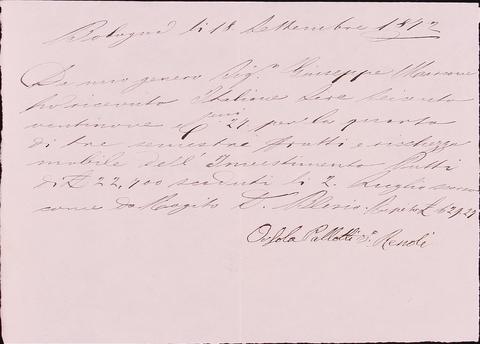 Bologna li 18 Settembre 1872
Da mio genero Sig.r Giuseppe
ho ricevuto Italiane Lire Seicento
ventinove e C. 29 per la quarta
di tre semestre frutti e richezza
mobile dell' Investimento Putti
di £ 22,400 scaduti li 2. Luglio
come da Rogito D.
Orsola Pallotti Va. Renoli